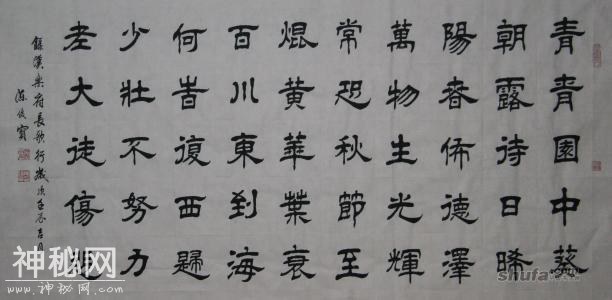 青青園中葵
朝露待日晞
陽春佈德澤
萬物生光輝
常恐秋節至
焜黄華葉衰
百川東到海
何旹復西歸
少壯不努力
老大徒傷悲
錄漢樂府長歌行歲次
神秘网
www.神秘网.COM